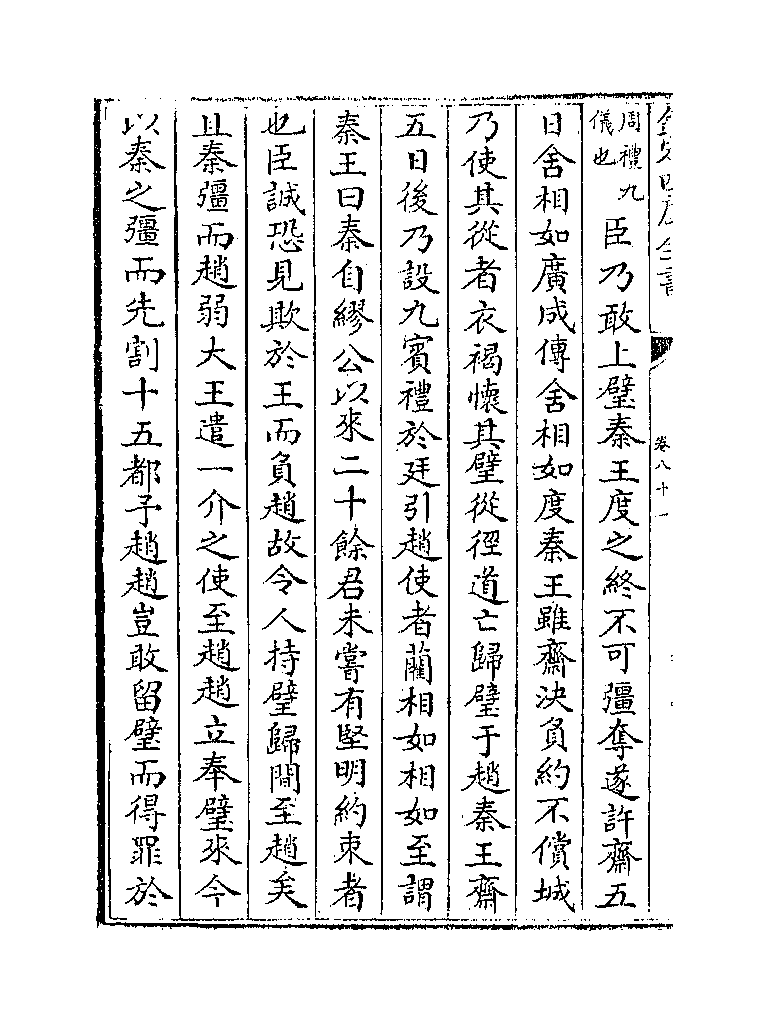 欽定四庫全書
卷八十一
周禮九儀也臣乃敢上璧秦王度之終不可彊奪遂許齋五
日舍相如廣成傳舍相如度秦王雖齋決負約不償城
乃使其從者衣褐懷其璧從徑道亡歸璧于趙秦王齋
五日後乃設九賓禮於廷引趙使者藺相如相如至謂
秦王曰秦自繆公以來二十餘君未嘗有堅明約束者
也臣誠恐見欺於王而負趙故令人持璧歸間至趙矣
且秦彊而趙弱大王遣一介之使至趙趙立奉璧來今
以秦之彊而先割十五都予趙趙豈敢留璧而得罪於